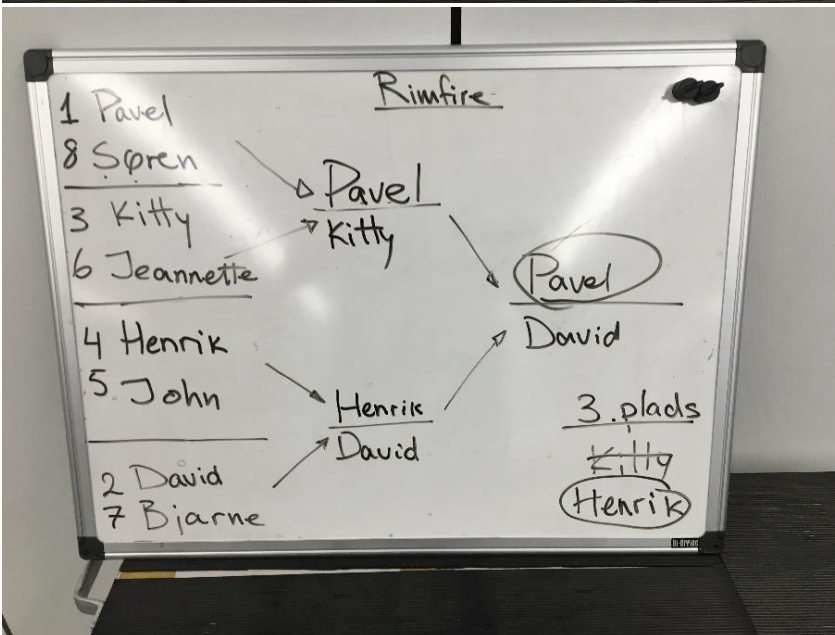 Rimfire
1 Pavel
8 Søren
3 Kitty
6 Jeannette
4 Henrik
5. John
2 David
7 Bjarne
Pavel
Kitty
Henrik
David
Pavel
David
3. plads
Kitty
Henrik